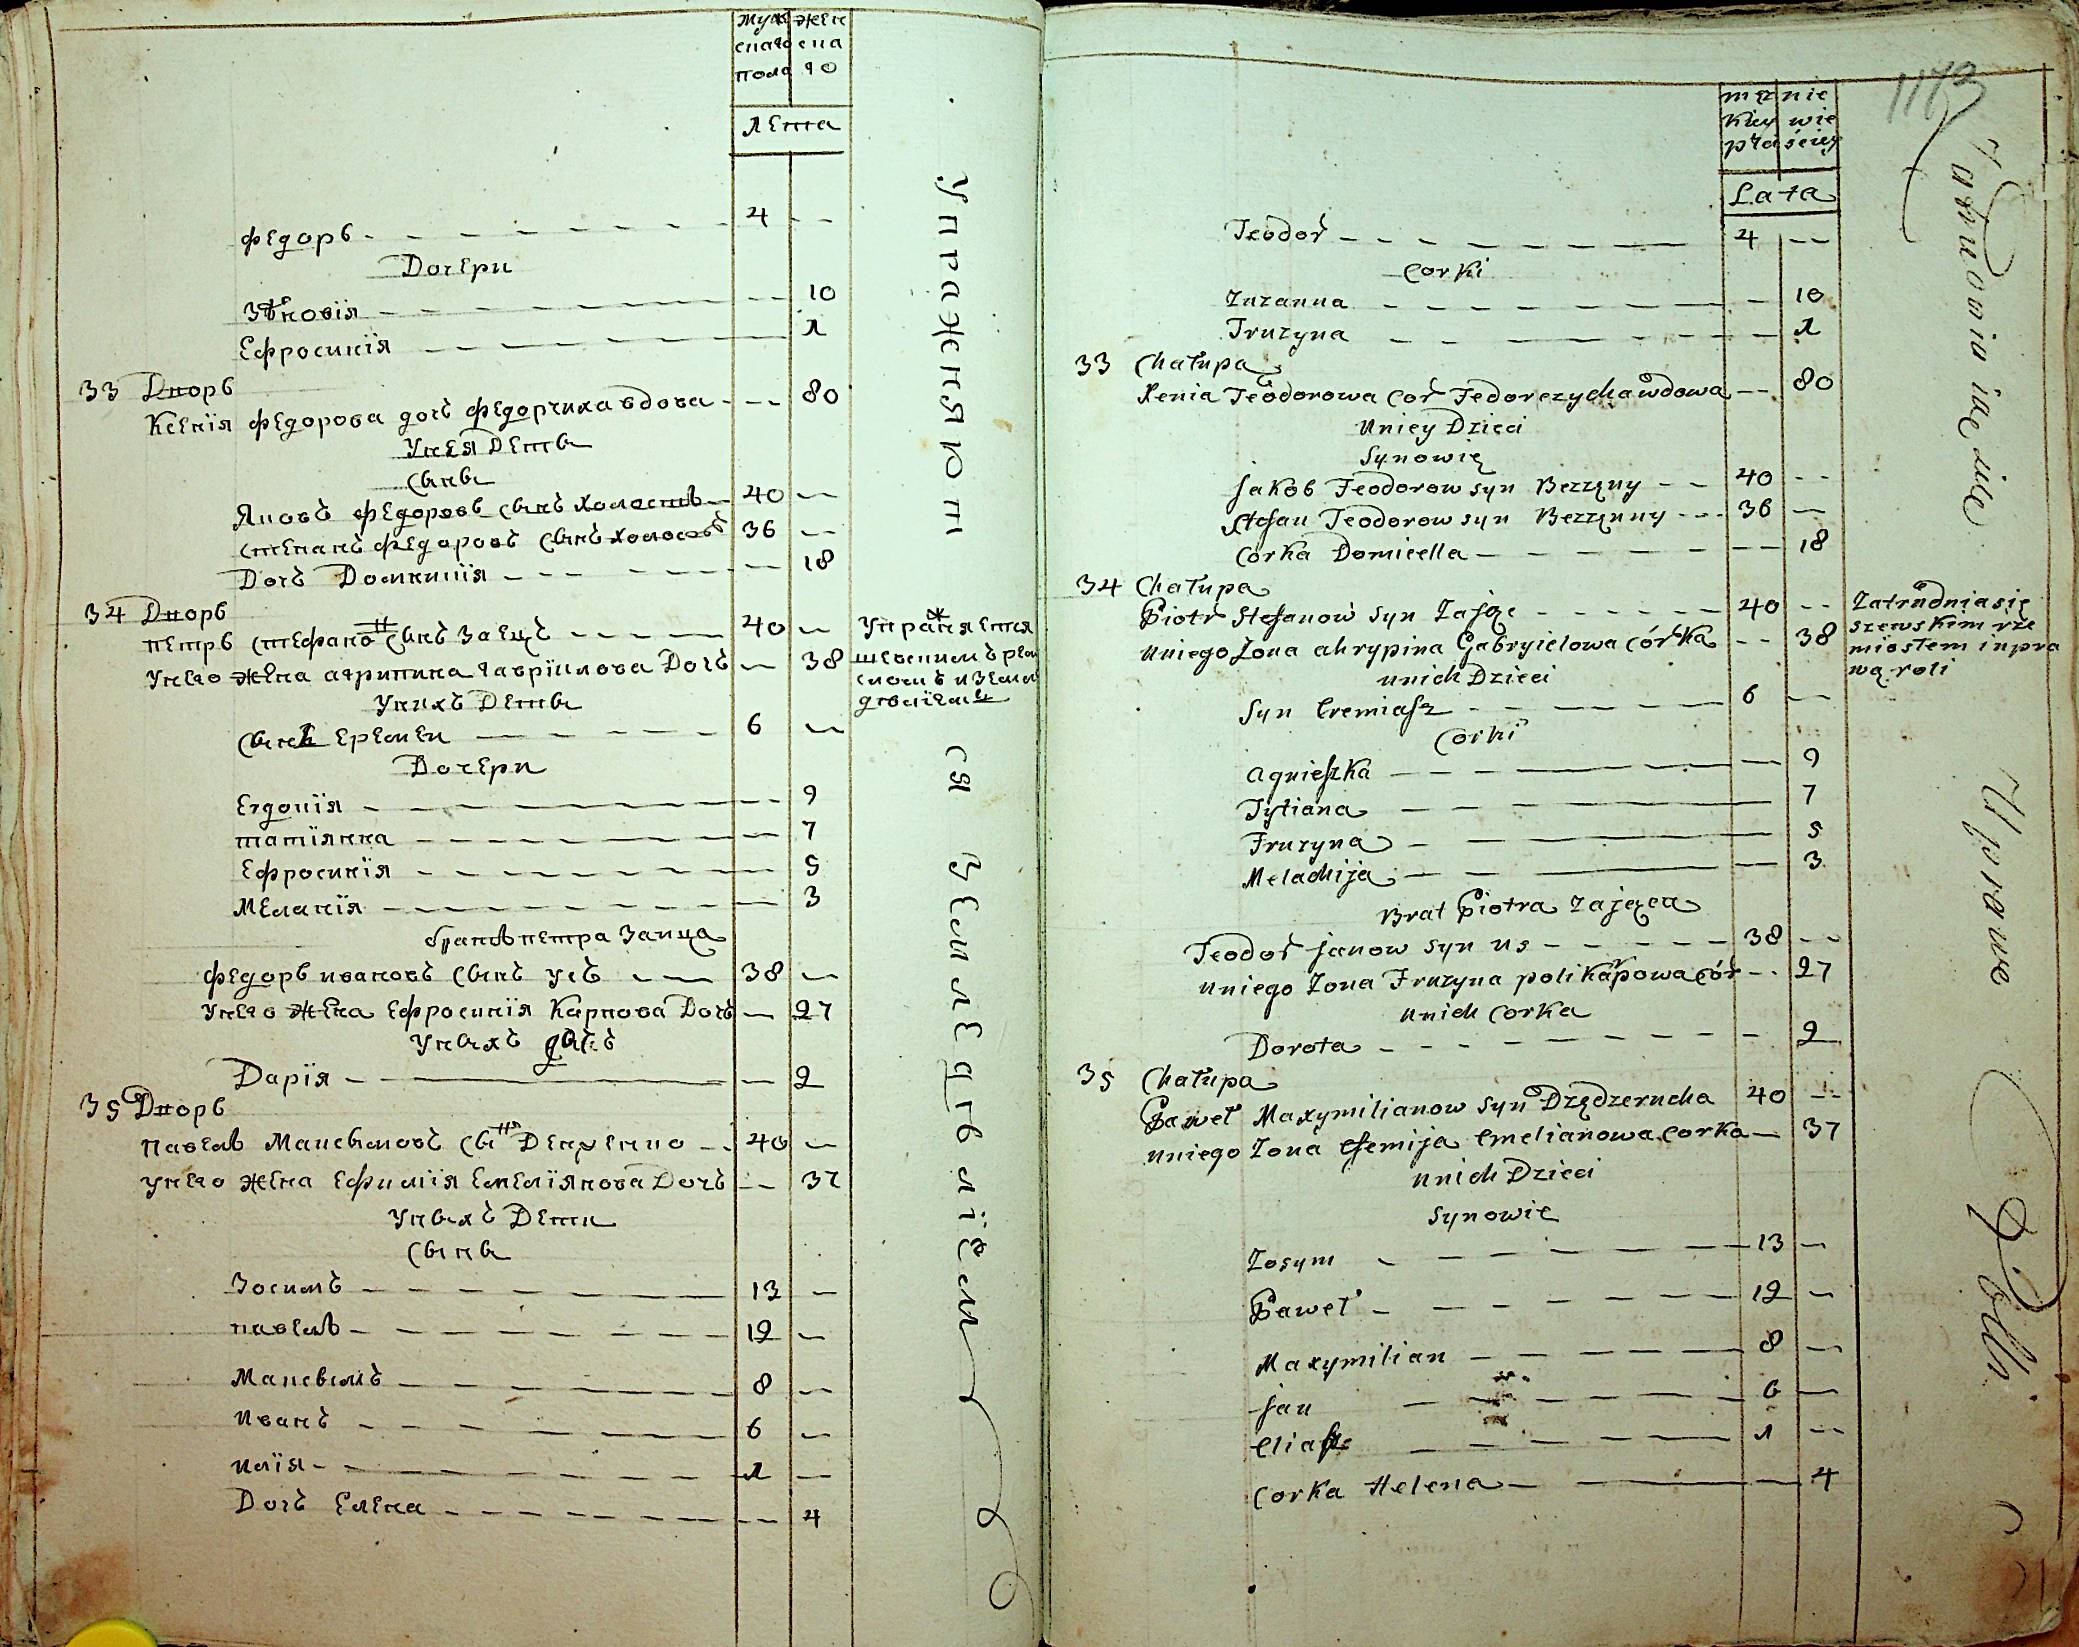 муж жен
скаго ска
пола го
лета
Федоръ 4
Дочери
Зѣновїя 10
Ефросинїя 1
33 Дворъ
Ксенїя Федорова дочь Федорчиха вдова 80
У нея Дети
Сыны
Яковъ Федоровъ Сынъ холостъ 40
Степанъ Федоровъ Сынъ холостъ 36
Дочь Домикилїя 18
34 Дворъ
Петръ Стефано Сынъ Заецъ 40
У него жена агрипина гаврїилова Дочь 38
У нихъ Дети
Сынъ Еремеи 6
Дочери
Евдокїя 9
Татїянка 7
Ефросинїя 5
Меланїя 3
братъ петра Заица
Федоръ ивановъ Сынъ усъ 38
У него жена Ефросинїя Карпова Дочь 27
У ныхъ дочь
Дарїя 2
35 Дворъ
Павелъ Максымовъ Сы Дендеруко 40
У него жена Ефимїя Емелїянова Дочь 37
У ныхъ Дети
Сыны
Зосимъ 13
павелъ 12
Максымъ 8
иванъ 6
илїя 1
Дочь Елена 4
Упражняется
шевскимъ рем
сломъ и земле
делїемъ
Упражняют ся Земледѣлїем
1173
męz nie
kiey wie
płci ściey
Lata
Teodor 4
Corki
Zuzanna 10
Fruzyna 1
33 Chałupa
Xenia Teodorowa Cor Fedorczycha wdowa 80
U niey Dzieci
Synowie
Jakob Teodorow syn Bezżęny 40
Stefan Teodorow syn Bezżęnny 36
Corka Domicella 18
34 Chałupa
Piotr Stefanow syn Zając 40
U niego Żona ahrypina Gabryielowa córka 38
U nich Dzieci
Syn Eremiasz 6
Corki
Agnieszka 9
Tytiana 7
Fruzyna 5
Melachija 3
Brat Piotra Zająca
Teodor Janow syn us 38
U niego Żona Fruzyna polikarpowa cór 27
U nich Corka
Dorota 2
35 Chałupa
Paweł Maxymilianow syn Dzędzerucha 40
U niego Żona Efemija Emelianowa Corka 37
U nich Dzieci
Synowie
Zosym 13
Paweł 12
Maxymilian 8
Jan 6
Eliasz 1
Corka Helena 4
Zatrudnia się
szewskim rze
miosłem i upra
wą roli
Zatrudnia ią się Uprawe Rolli